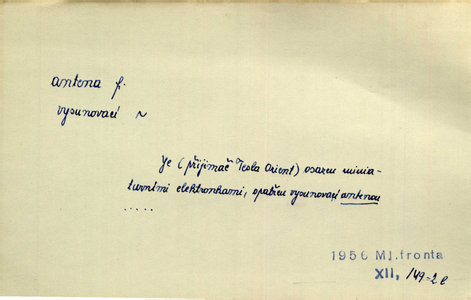 antena f.
vysunovací ~
Je (přijimač Tesla Orient) osazen minia-
turními elektronkami, opatřen vysunovací antenou
.....
1956 Ml.fronta
XII, /149-2